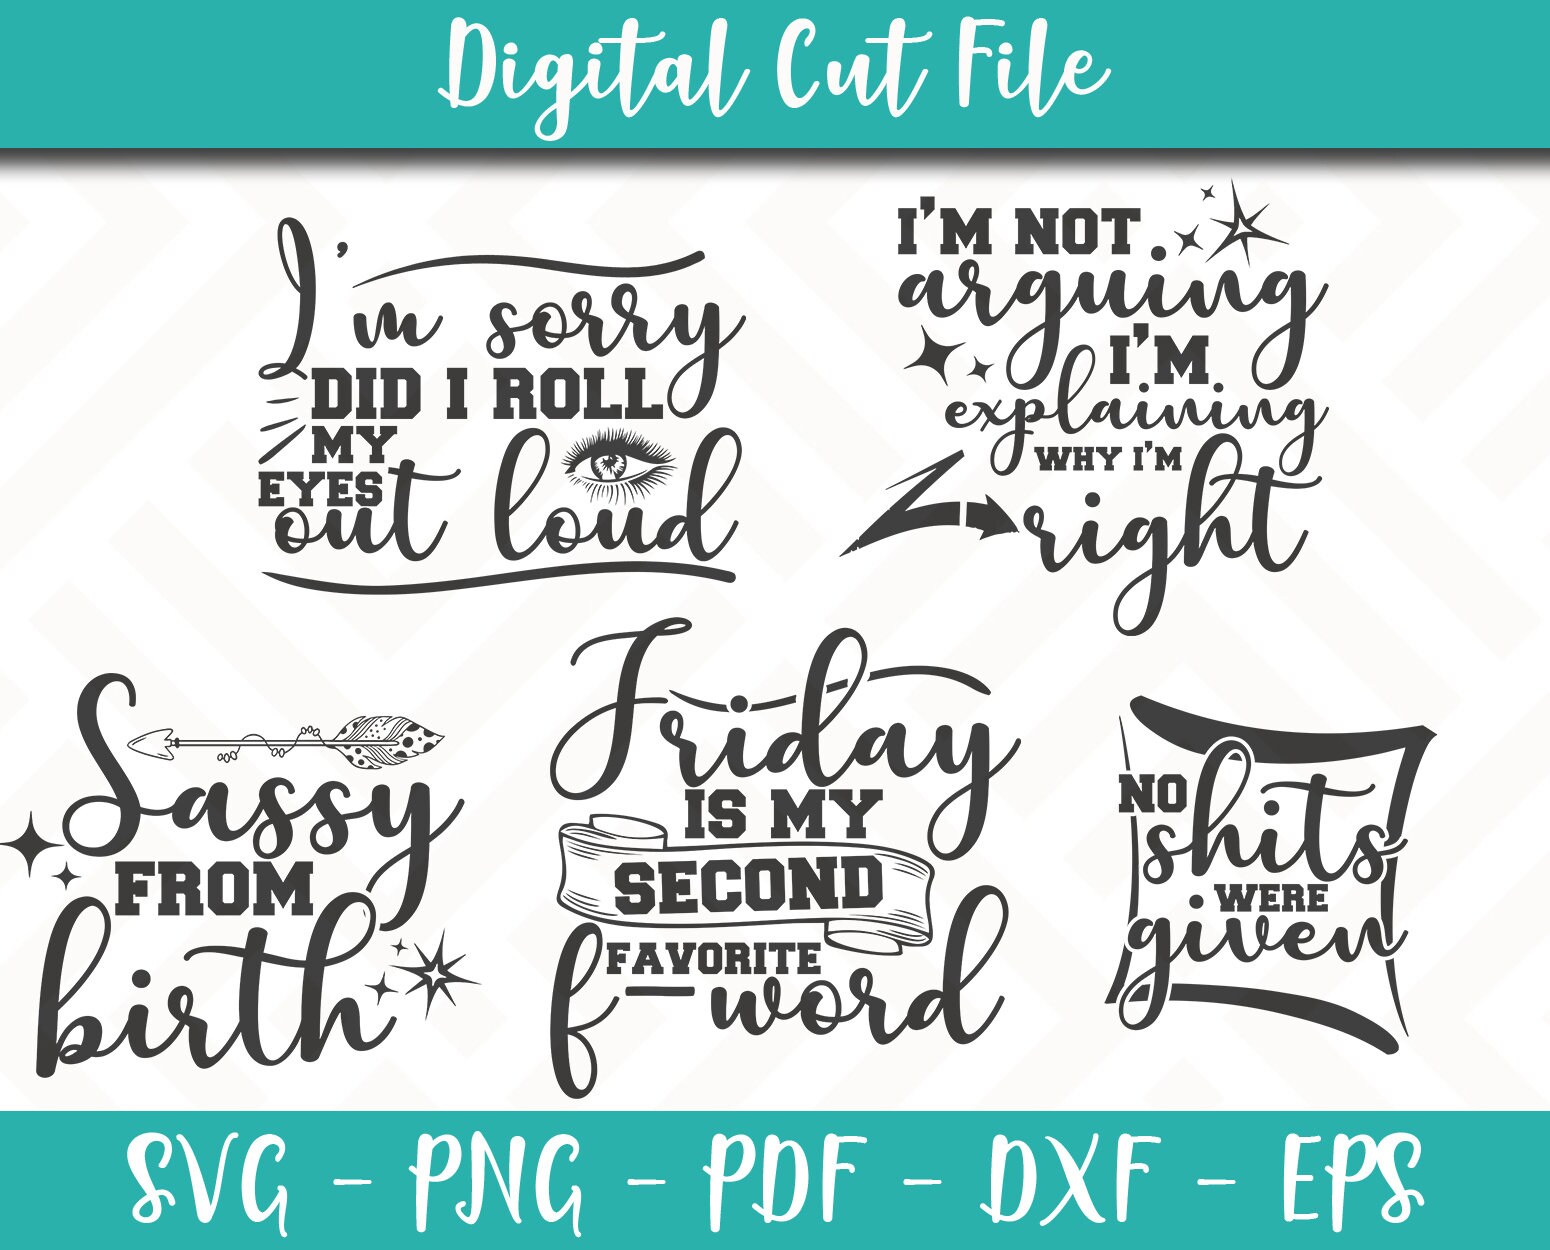 Digital Cut File
I'm sorry
DID I ROLL
MY
EYES
out loud
I'M NOT
arguing
I'M
explaining
WHY I'M
right
Sassy
FROM
birth
Friday
IS MY
SECOND
FAVORITE
f-word
NO
shits
WERE
given
SVG - PNG - PDF - DXF - EPS